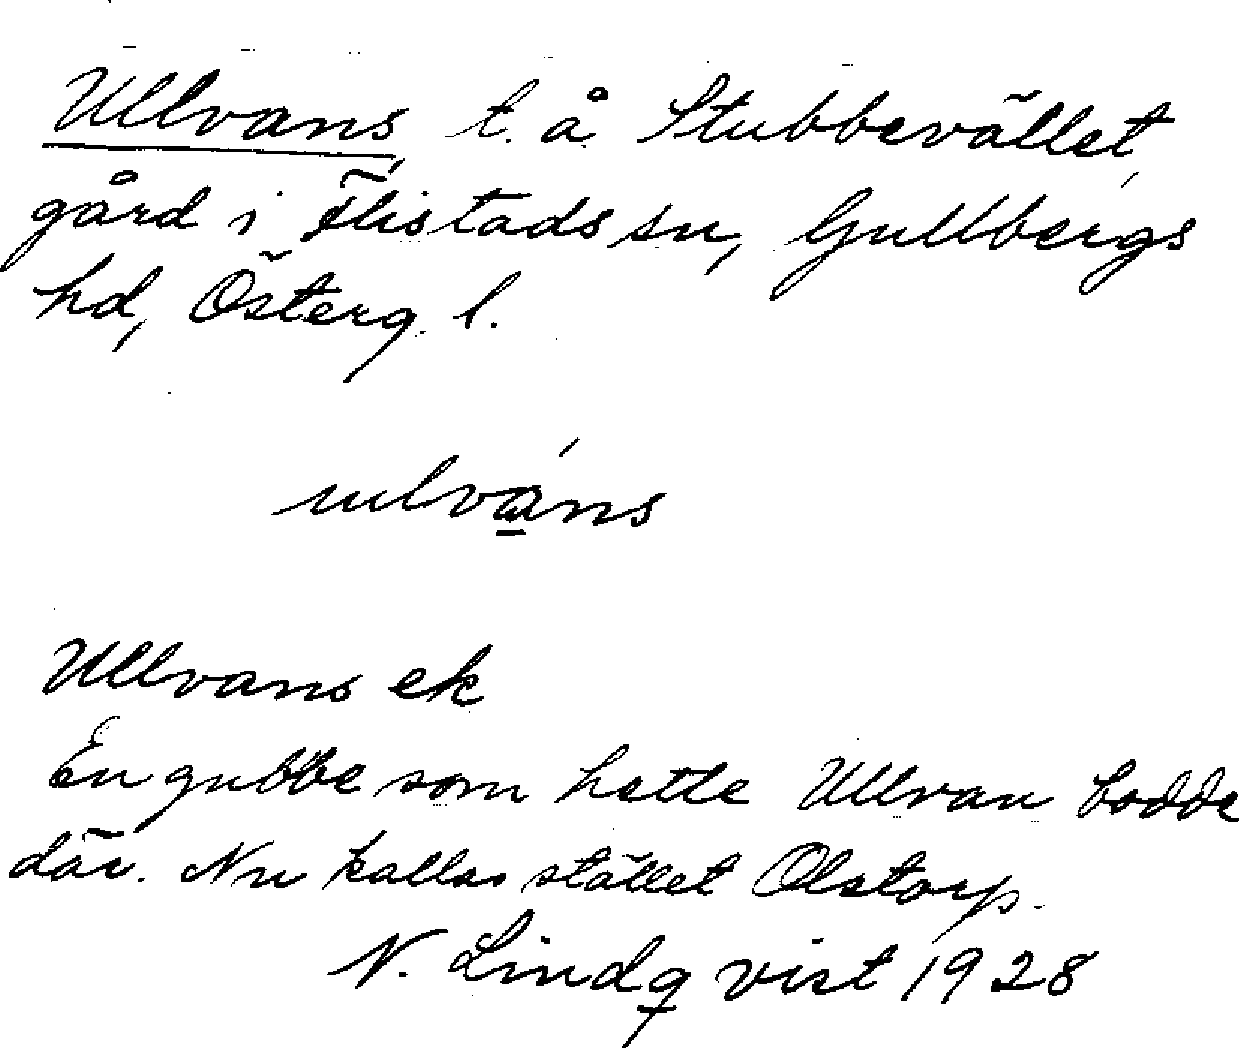 Ullvans, t. å Stubbevället,
gård i Flistads sn, Gullbergs
hd, Österg. l.
ulváns
Ullvans ek
En gubbe som hette Ullvan bodde
där. Nu kallas stället Olstorp.
N. Lindqvist 1928